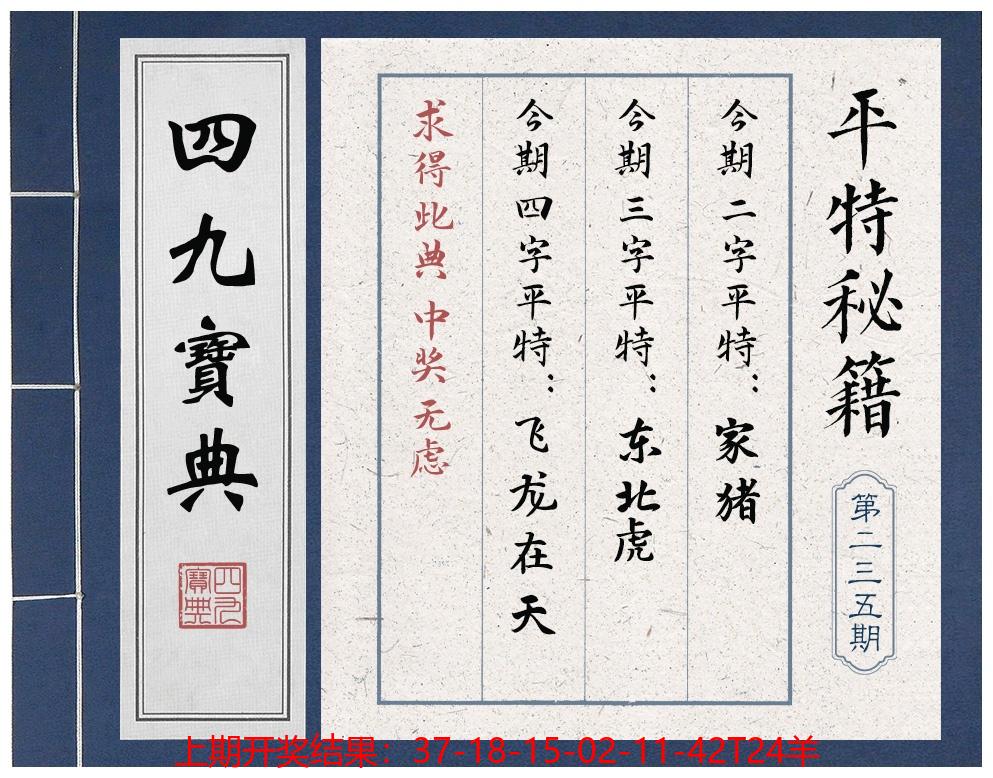 平特秘籍
第二三五期
今期二字平特：家猪
今期三字平特：东北虎
今期四字平特：飞龙在天
求得此典 中奖无虑
四九寶典
四九寶典
上期开奖结果：37-18-15-02-11-42T24羊